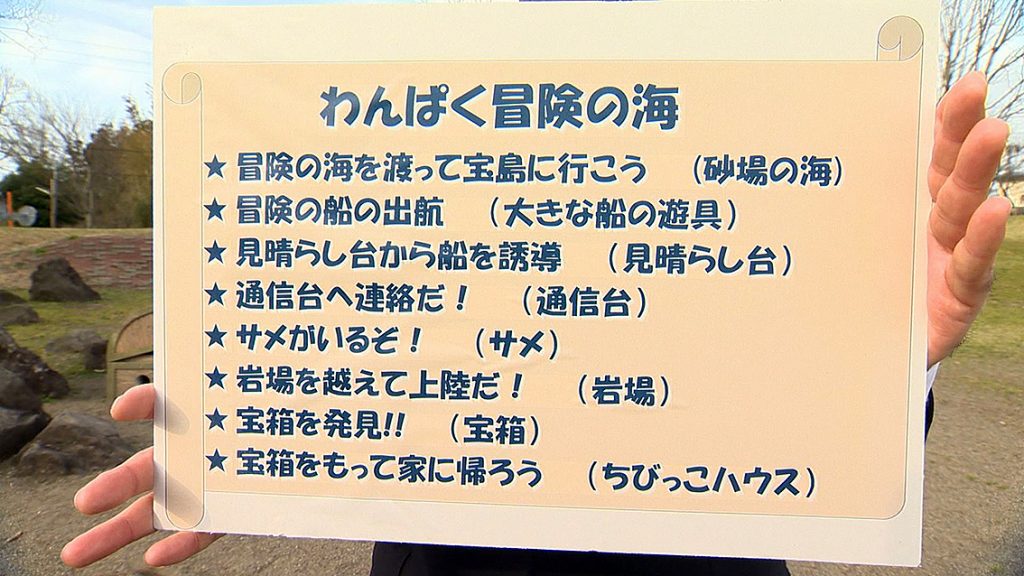 わんぱく冒険の海
★ 冒険の海を渡って宝島に行こう （砂場の海）
★ 冒険の船の出航 （大きな船の遊具）
★ 見晴らし台から船を誘導 （見晴らし台）
★ 通信台へ連絡だ！ （通信台）
★ サメがいるぞ！ （サメ）
★ 岩場を越えて上陸だ！ （岩場）
★ 宝箱を発見!! （宝箱）
★ 宝箱をもって家に帰ろう （ちびっこハウス）